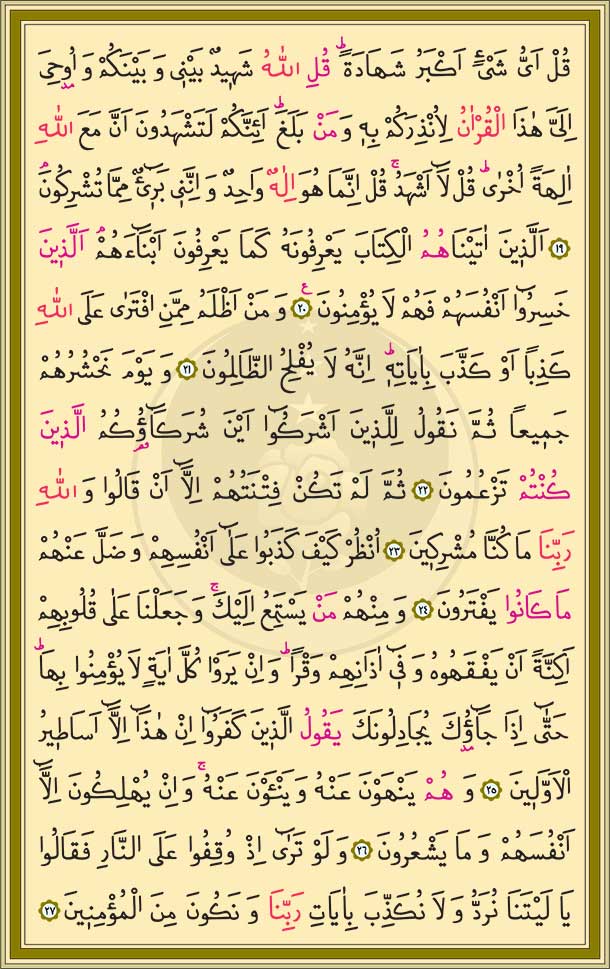 قُلْ اَىُّ شَىْءٍ اَكْبَرُ شَهَادَةًۜ قُلِ اللّٰهُ شَه۪يدٌ بَيْن۪ى وَ بَيْنَكُمْ وَ اُو۫حِىَ
اِلَىَّ هٰذَا الْقُرْاٰنُ لِاُنْذِرَكُمْ بِه۪ وَ مَنْ بَلَغَۜ اَئِنَّكُمْ لَتَشْهَدُونَ اَنَّ مَعَ اللّٰهِ
اٰلِهَةً اُخْرٰىۜ قُلْ لَٓا اَشْهَدُۚ قُلْ اِنَّمَا هُوَ اِلٰهٌ وَاحِدٌ وَ اِنَّن۪ى بَر۪ٓىءٌ مِمَّا تُشْرِكُونَۢ
﴿١٩﴾ اَلَّذ۪ينَ اٰتَيْنَاهُمُ الْكِتَابَ يَعْرِفُونَهُ كَمَا يَعْرِفُونَ اَبْنَٓاءَهُمْۢ اَلَّذ۪ينَ
خَسِرُٓوا اَنْفُسَهُمْ فَهُمْ لَا يُؤْمِنُونَ۟ ﴿٢٠﴾ وَ مَنْ اَظْلَمُ مِمَّنِ افْتَرٰى عَلَى اللّٰهِ
كَذِباً اَوْ كَذَّبَ بِاٰيَاتِه۪ۜ اِنَّهُ لَا يُفْلِحُ الظَّالِمُونَ ﴿٢١﴾ وَ يَوْمَ نَحْشُرُهُمْ
جَم۪يعاً ثُمَّ نَقُولُ لِلَّذ۪ينَ اَشْرَكُٓوا اَيْنَ شُرَكَٓاؤُ۬كُمُ الَّذ۪ينَ
كُنْتُمْ تَزْعُمُونَ ﴿٢٢﴾ ثُمَّ لَمْ تَكُنْ فِتْنَتُهُمْ اِلَّٓا اَنْ قَالُوا وَ اللّٰهِ
رَبِّنَا مَا كُنَّا مُشْرِك۪ينَ ﴿٢٣﴾ اُنْظُرْ كَيْفَ كَذَبُوا عَلٰٓى اَنْفُسِهِمْ وَ ضَلَّ عَنْهُمْ
مَا كَانُوا يَفْتَرُونَ ﴿٢٤﴾ وَ مِنْهُمْ مَنْ يَسْتَمِعُ اِلَيْكَۚ وَ جَعَلْنَا عَلٰى قُلُوبِهِمْ
اَكِنَّةً اَنْ يَفْقَهُوهُ وَ ف۪ٓى اٰذَانِهِمْ وَقْراًۜ وَ اِنْ يَرَوْا كُلَّ اٰيَةٍ لَا يُؤْمِنُوا بِهَاۜ
حَتّٰٓى اِذَا جَٓاؤُ۫كَ يُجَادِلُونَكَ يَقُولُ الَّذ۪ينَ كَفَرُٓوا اِنْ هٰذَٓا اِلَّٓا اَسَاط۪يرُ
الْاَوَّل۪ينَ ﴿٢٥﴾ وَ هُمْ يَنْهَوْنَ عَنْهُ وَ يَنْـَٔوْنَ عَنْهُۚ وَ اِنْ يُهْلِكُونَ اِلَّٓا
اَنْفُسَهُمْ وَ مَا يَشْعُرُونَ ﴿٢٦﴾ وَ لَوْ تَرٰٓى اِذْ وُقِفُوا عَلَى النَّارِ فَقَالُوا
يَا لَيْتَنَا نُرَدُّ وَ لَا نُكَذِّبَ بِاٰيَاتِ رَبِّنَا وَ نَكُونَ مِنَ الْمُؤْمِن۪ينَ ﴿٢٧﴾